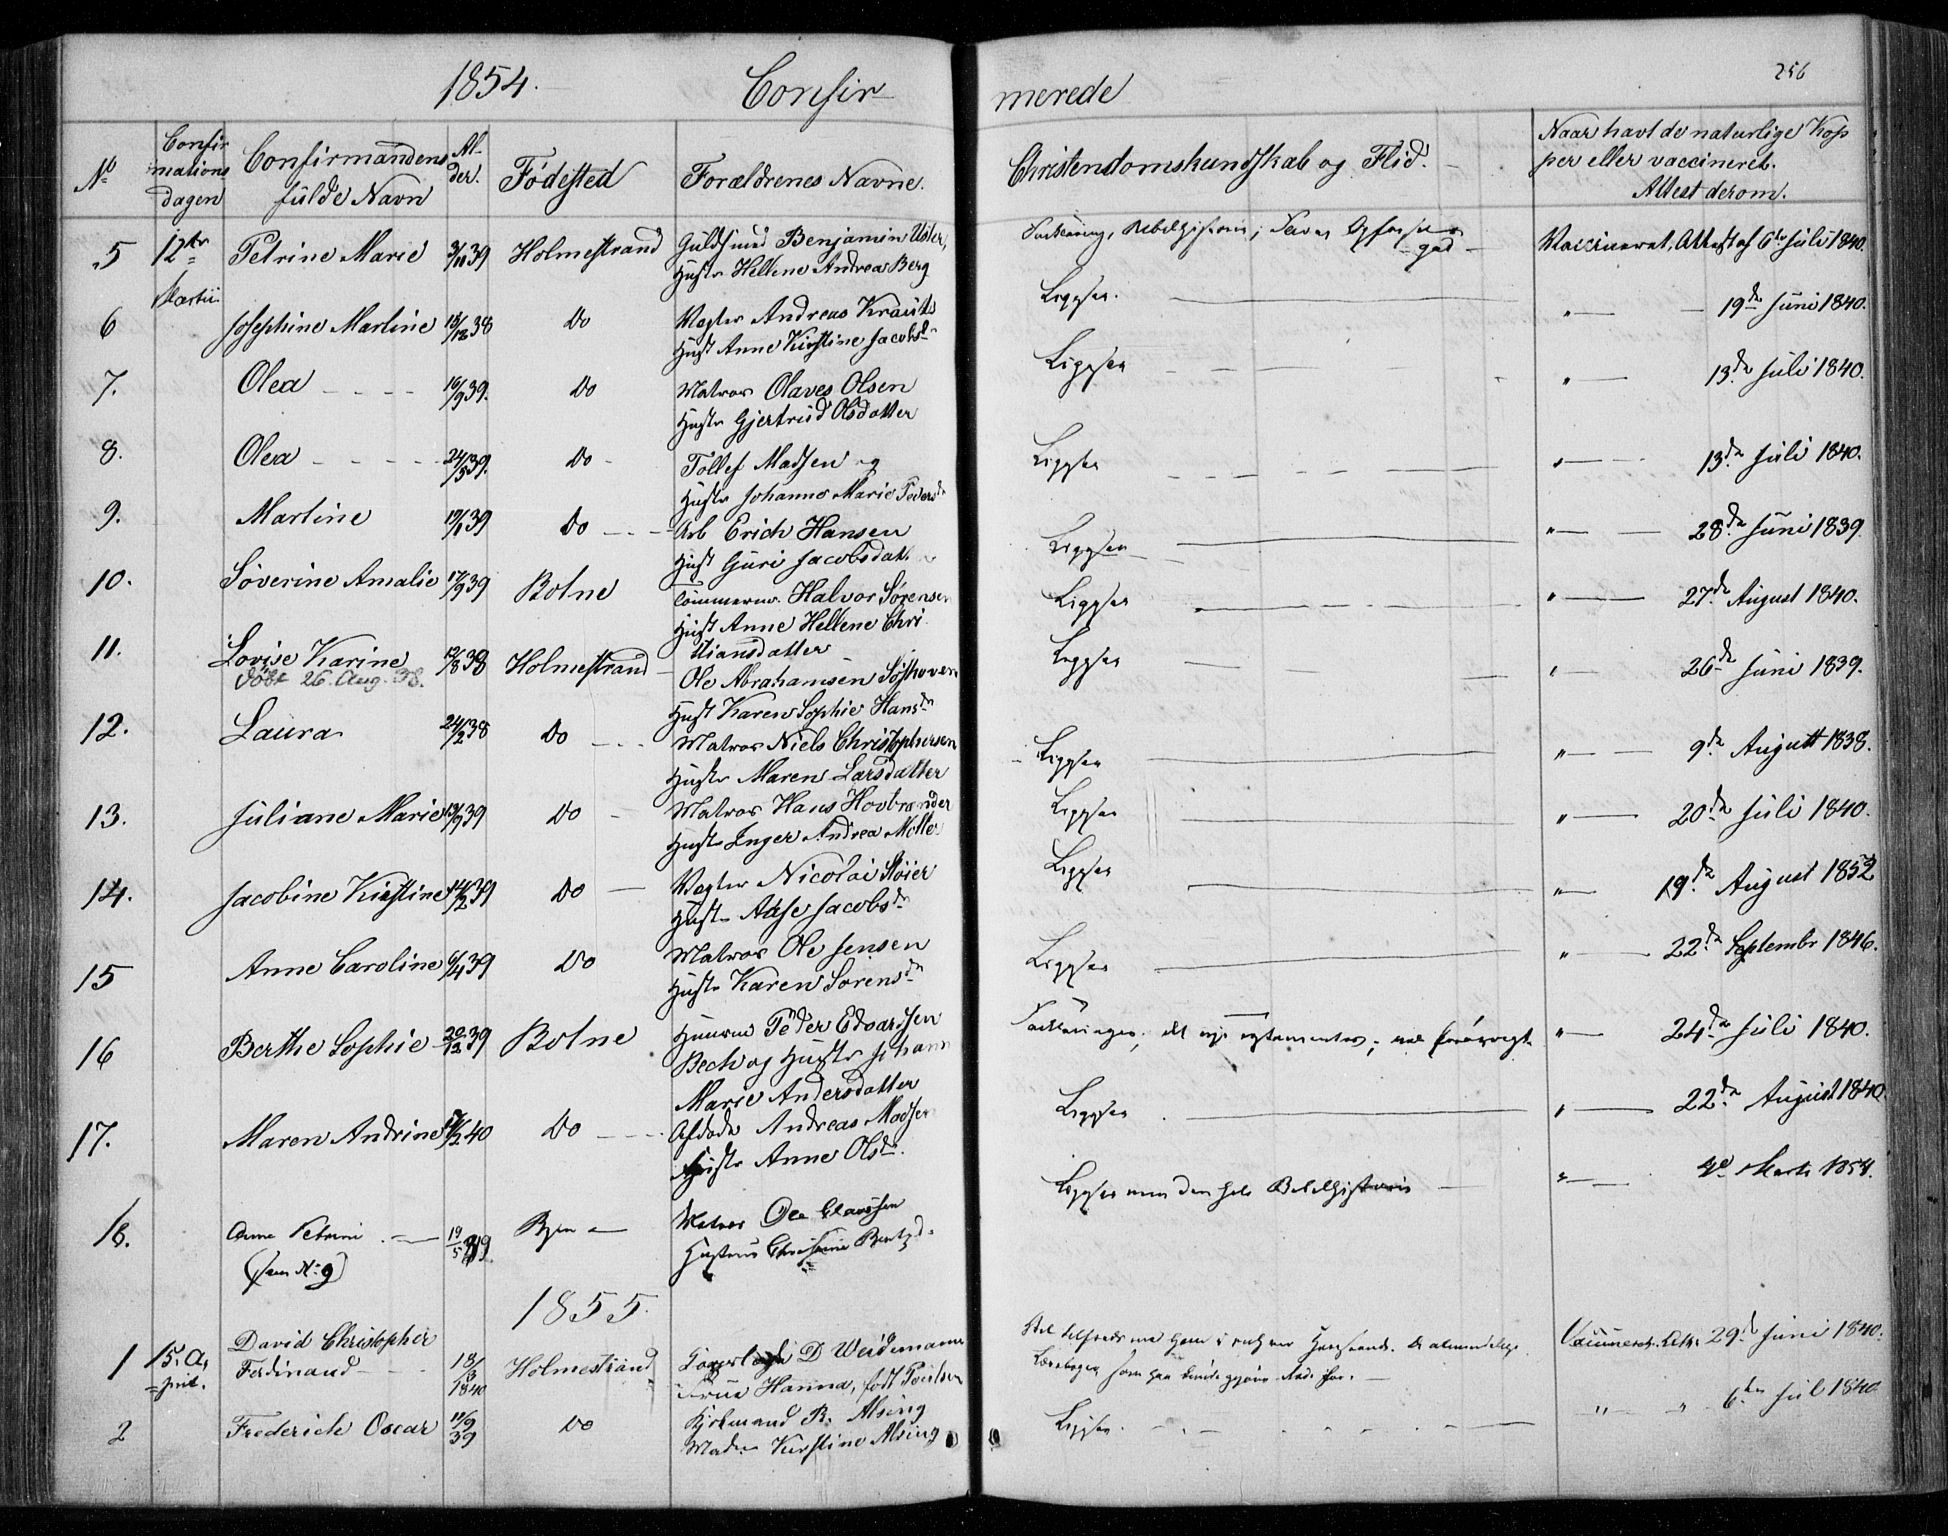 256
1854. Confir- merede
No
Confirmations dagen
Confirmandens fulde Navn
Alder.
Fødested
Forældrenes Navne.
Christendomskundskab og Flid.
Naar havt de naturlige Kopper eller vaccineret. Attest derom.
5 12te Martii Petrine Marie 3/11 39 Holmestrand Guldsmed Benjamin
Hustr Hellene Andrea Berg
Vaccinerat. Attest af 6te Juli 1840.
6 Josephine Martine 18/12 38 Do Vægter Andreas
Hust Anne Kirstine Jacobsd
Ligesaa. " 19de Juni 1840.
7. Olea 16/9 39. Do Matros Olaves Olsen
Hustr Gjertrud Olsdatter
Ligesaa " 13de Juli 1840.
8. Olea 24/5 39. Do Tollef Madsen og
Hustr Johanne Marie Peders
Ligesaa " 13de Juli 1840.
9. Martine 19/1 39 Do Arb Erich Hansen
Hust Guri Jacobsdatt
Ligesaa " 28de Juni 1839.
10. Søverine Amalie 17/9 39 Botne Tømmerm. Halvor Sørensen
Hust Anne Hellene Chri
stiansdatter
Ligesaa " 27de August 1840.
11. Lovise Karine 12/8 38 Holmestrand Ole Abrahamsen
døbt 26. Aug. 38.
Hust Karen Sophie Hansdr
Ligesaa " 26de Juni 1839.
12. Laura 24/2 38 Do Matros Niels Christophersen
Hustr Maren Larsdatter
Ligesaa " 9de August 1838.
13. Juliane Marie 13/9 39 Do Matros Hans
Hustr Inger Andrea Møller
Ligesaa " 20de Juli 1840.
14. Jacobine Kirstine 14/2 39 Do Vægter Nicolai
Hustr Aase Jacobsdr
Ligesaa " 19de August 1852
15 Anne Caroline 6/4 39 Do Matros Ole Jensen
Hustr Karen Sørensdr
Ligesaa " 22de Septembr 1846.
16 Berthe Sophie 20/12 39 Botne Huusm Peder Edvardsen
Bech og Hustr Johann
Marie Andersdatter
" 24de Juli 1840.
17. Maren Andrine /2 40 Do Afdøde Andreas Madsen
Hustr Anne Olsdr.
Ligesaa " 22de August 1840
18. Anne Petrine 19/5 39. Byen Matros Ole Claussen
(sem No 9)
Hustrue Christine
Ligesaa men den hele Bibelhistorie " Marts 1854.
1855.
1 15. April. David Christopher
Ferdinand 18/3 1840 Holmestrand D Weidemann
Frue Hanna, født Poulsen
Vaccineret. Att: 29de Juni 1840.
2 Frederich Oscar 19/9 39 Do Kjøbmand R. Alsing
Mad. Kirstine Alsing
Ligesaa " " 6te Jul 1840